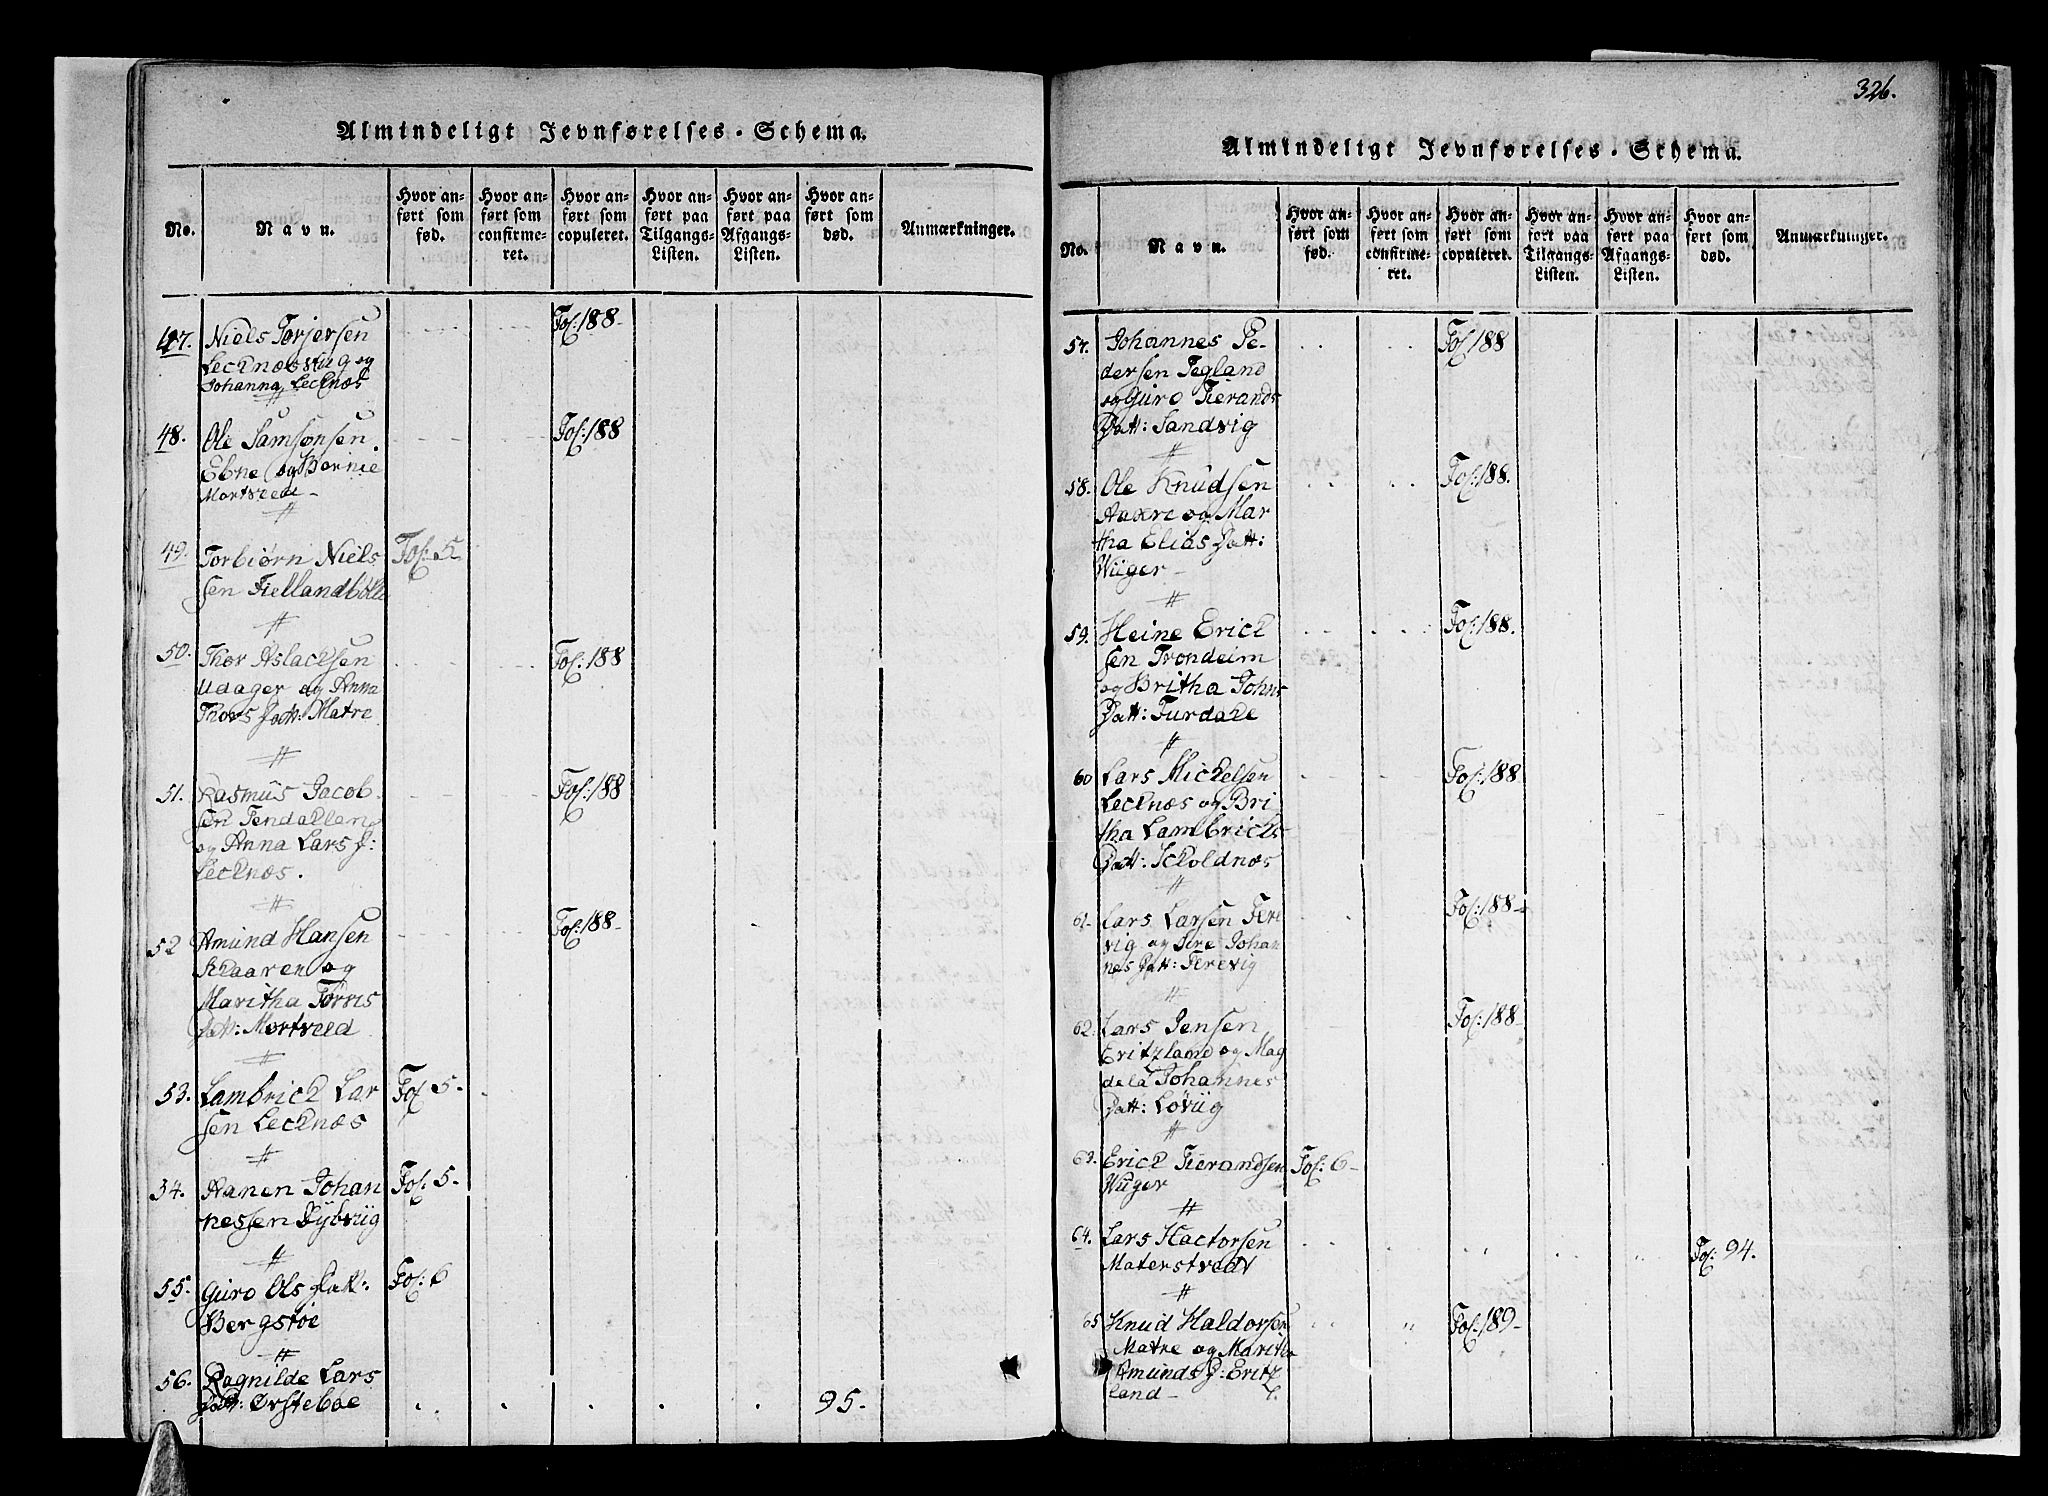 Almindeligt Jevnførelses-Schema.
No.
Navn.
Hvor anført som fød.
Hvor anført som confirmeret.
Hvor anført som copuleret.
Hvor anført paa Tilgangs-Listen.
Hvor anført paa Afgangs-Listen.
Hvor anført som død.
Anmærkninger.
47. Niels Torjersen Fol: 188-
Lecknæsvug og
Johanna Lecknæs
48. Ole Samsonsen Fol: 188
Ebne og Bernie
Mortveed-
49. Torbiørn Niels Fol: 5
sen Fiellandbolle
50. Thor Aslacksen Fol: 188
Udager og Anna
Thors Datt: Matre
51. Rasmus Jacob Fol: 188
sen Tendallen
og Anna Lars D:
Lecknæs.
52 Amund Hansen Fol: 188-
Skaaren og
Maritha Torris
Datt: Mortveed
53. Lambrick Lar Fol 5-
sen Lecknæs
54. Aanen Johan Fol: 5-
nessen Dybviig
55. Guro Ols Datt: Fol: 6
Bergstøe
56. Ragnilde Lars
Datt: Ørsteboe 95.
326.
Almindeligt Jevnførelses-Schema.
No.
Navn.
Hvor anført som fød.
Hvor anført som confirmeret.
Hvor anført som copuleret.
Hvor anført paa Tilgangs-Listen.
Hvor anført paa Afgangs-Listen.
Hvor anført som død.
Anmærkninger.
57. Johannes Pe- Fol 188
dersen Tegland
og Guro Tierands
Datt: Sandvig
58. Ole Knudsen Fol: 188.
Aakre og Mar
tha Elias Datt:
Wuger-
59. Heine Erick Fol: 188.
sen Trondeim
og Britha Johns
Datt: Furdale
60 Lars Mickelsen Fol: 188
Lecknæs og Bri
tha Lambricks
Datt: Skoldnæs
61. Lars Larsen Tere Fol: 188-
vig og Sire Johan
nes Datt: Terevig
62. Lars Jensen Fol: 188-
Eritzland og Mag
dela Johannes
Datt: Loviig
63. Erick Tierandsen Fol: 6-
Wuger
64. Lars Hactorsen Fol: 94.
Matterstvedt
65 Knud Haldorsen Fol: 189-
Matre og Maritha
Amunds D: Eritz
land-